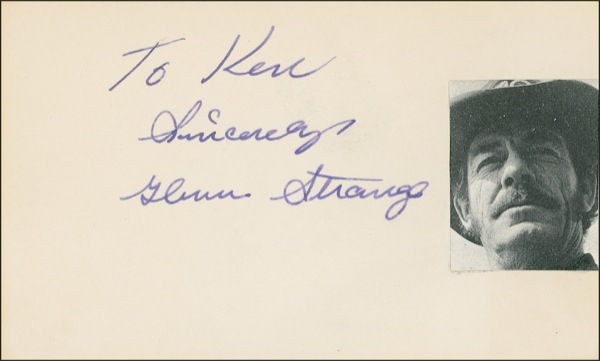 To Ken
Sincerely
Glenn Strange